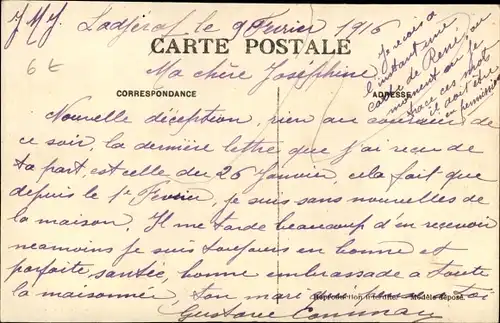 J M J Ladjéraf le 9 Février 1916
CARTE POSTALE
6 E
Ma chère Joséphine
CORRESPONDANCE
ADRESSE
Je reçois à
l'instant une
carte de René, au
moment où je
trace ces mots
il doit être
en permission
Nouvelle déception, rien au courrier de
ce soir, la dernière lettre que j'ai reçue de
ta part, est celle du 26 Janvier, cela fait que
depuis le 1er Février, je suis sans nouvelles de
la maison. Il me tarde beaucoup d'en recevoir
neamoins je suis toujours en bonne et
parfaite santée, bonne embrassade a toute
la maisonnée, ton mari qui pense a toi
Reproduction interdite - Modèle déposé
Gustave